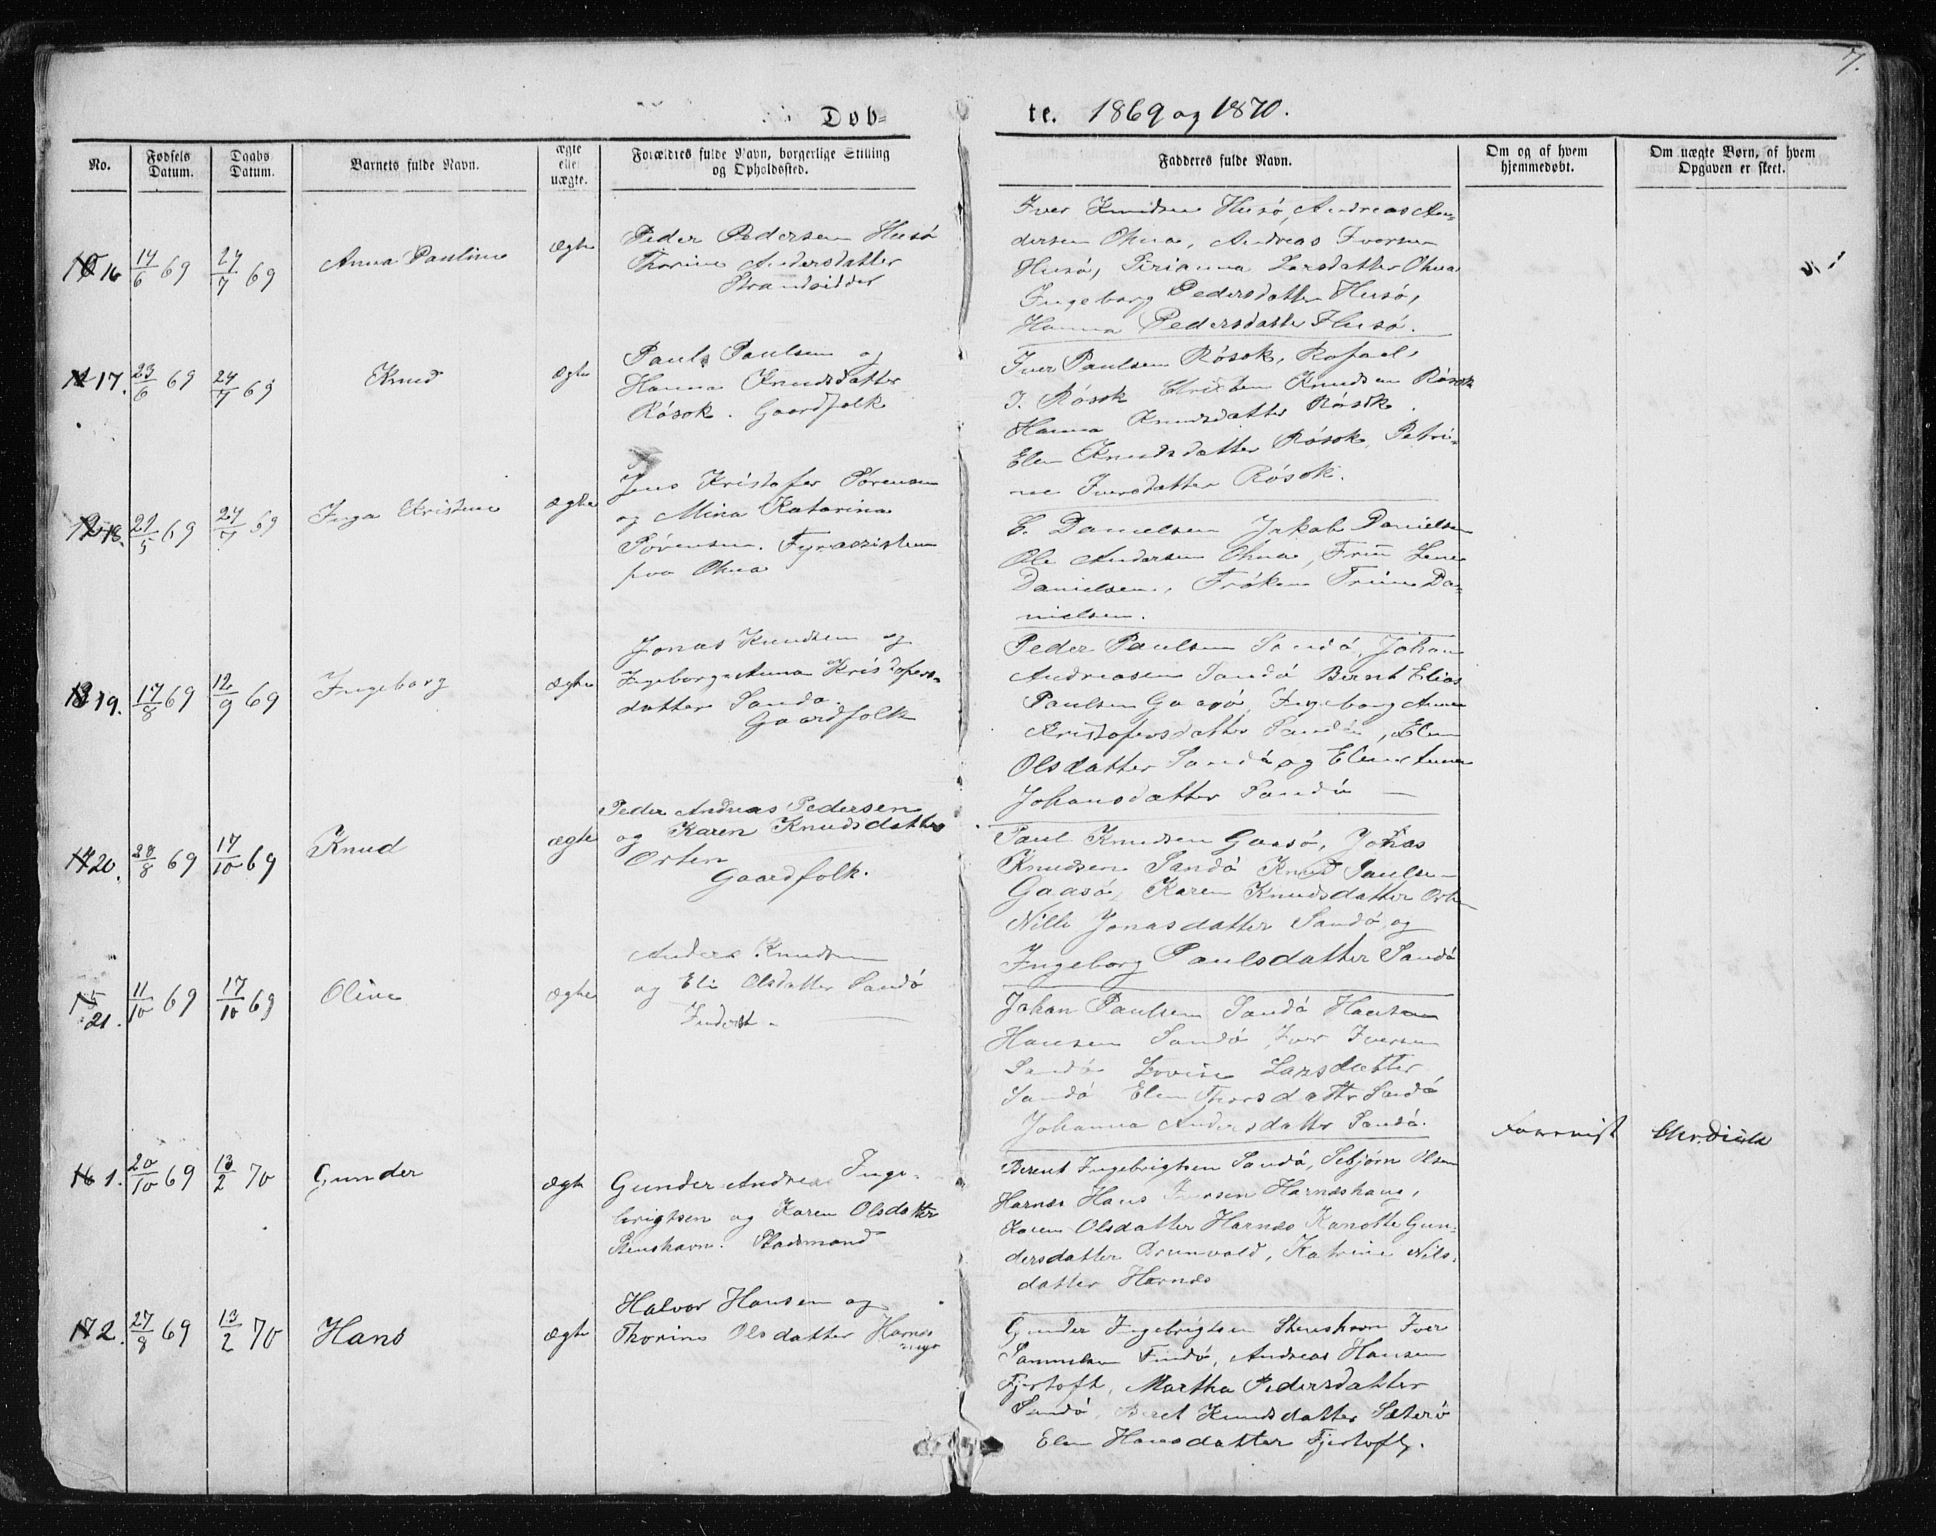 7.
Døb= te. 1869 og 1870.
No. Fødsels Datum. Daabs Datum. Barnets fulde Navn. ægte eller uægte. Forældres fulde Navn, borgerlige Stilling og Opholdssted. Fadderes fulde Navn. Om og af hvem hjemmedøbt. Om uægte Børn, af hvem Opgaven er skeet.
16 14/6 69 24/7 69 Anna Pauline ægte
Peder Pedersen Husø
Thorine Andersdatter
Strandsidder
Iver Knudsen Husø, Andreas An-
dersen Ohna, Andreas Iversen
Husø, Larsdatter Ohna
Ingeborg Pedersdatter Husø,
Hanna Pedersdatter Husø.
17. 23/6 69 24/7 69 Knud ægte
Paul Paulsen og
Hanna Knudsdatter
Røsok. Gaardfolk
Iver Paulsen Røsok, Rafael
I. Røsok Kristen Knudsen Røsok
Hanna Knudsdatter Røsok.
Elen Knudsdatter Røsok, Petri-
ne Iversdatter Røsok.
18. 21/5 69 24/7 69 Inga Kristine ægte
Jens Kristofer Sørensen
og Mina Katarina
Sørensen.
paa Ohna
C. Danielsen Jakob Danielsen
Ole Andersen Ohna, Fru Lene
Danielsen, Frøken Trine Da-
nielsen.
19. 17/8 69 12/9 69 Ingeborg ægte
Jonas Knudsen og
Ingeborg Anna Kristofers-
datter Sandø.
Gaardfolk
Peder Paulsen Sandø, Johan
Andreasen Sandø Bernt Elias
Paulsen Gaasø, Ingeborg Anna
Kristofersdatter Sandø, Elen
Olsdatter Sandø og Elen Anna
Johansdatter Sandø —
20. 28/8 69 17/10 69 Knud ægte
Peder Andreas Pedersen
og Karen Knudsdatter
Orten
Gaardfolk.
Paul Knudsen Gaasø, Jonas
Knudsen Sandø Knud Paulsen
Gaasø, Karen Knudsdatter Orten
Nille Jonasdatter Sandø og
Ingeborg Paulsdatter Sandø
21. 11/10 69 17/10 69 Oline ægte
Anders Knudsen
og Eli Olsdatter Sandø
Inderst.
Johan Paulsen Sandø Hans
Hansen Sandø, Iver Iversen
Sandø Lovise Larsdatter
Sandø Elen Thorsdatter Sandø
Johanna Andersdatter Sandø.
1. 20/10 69 13/2 70 Gunder ægte
Gunder Andreas Inge-
brigtsen og Karen Olsdatter
Stenshavn. Pladsmand
Berent Ingebrigtsen Sandø, Sebjørn Olsen
Harnes Hans Iversen Harneshaug,
Karen Olsdatter Harnes Kanotte Gun-
dersdatter Brunvold, Katrine Nils-
datter Harnes
2. 27/8 69 13/2 70 Hans ægte
Halvor Hansen og
Thorine Olsdatter Harnes
Gunder Ingebrigtsen Stenshavn Iver
Samuelsen Findø, Andreas Hansen
Fjørtoft, Martha Pedersdatter
Sandø, Beret Knudsdatter Sæterø
Elen Hansdatter Fjørtoft.